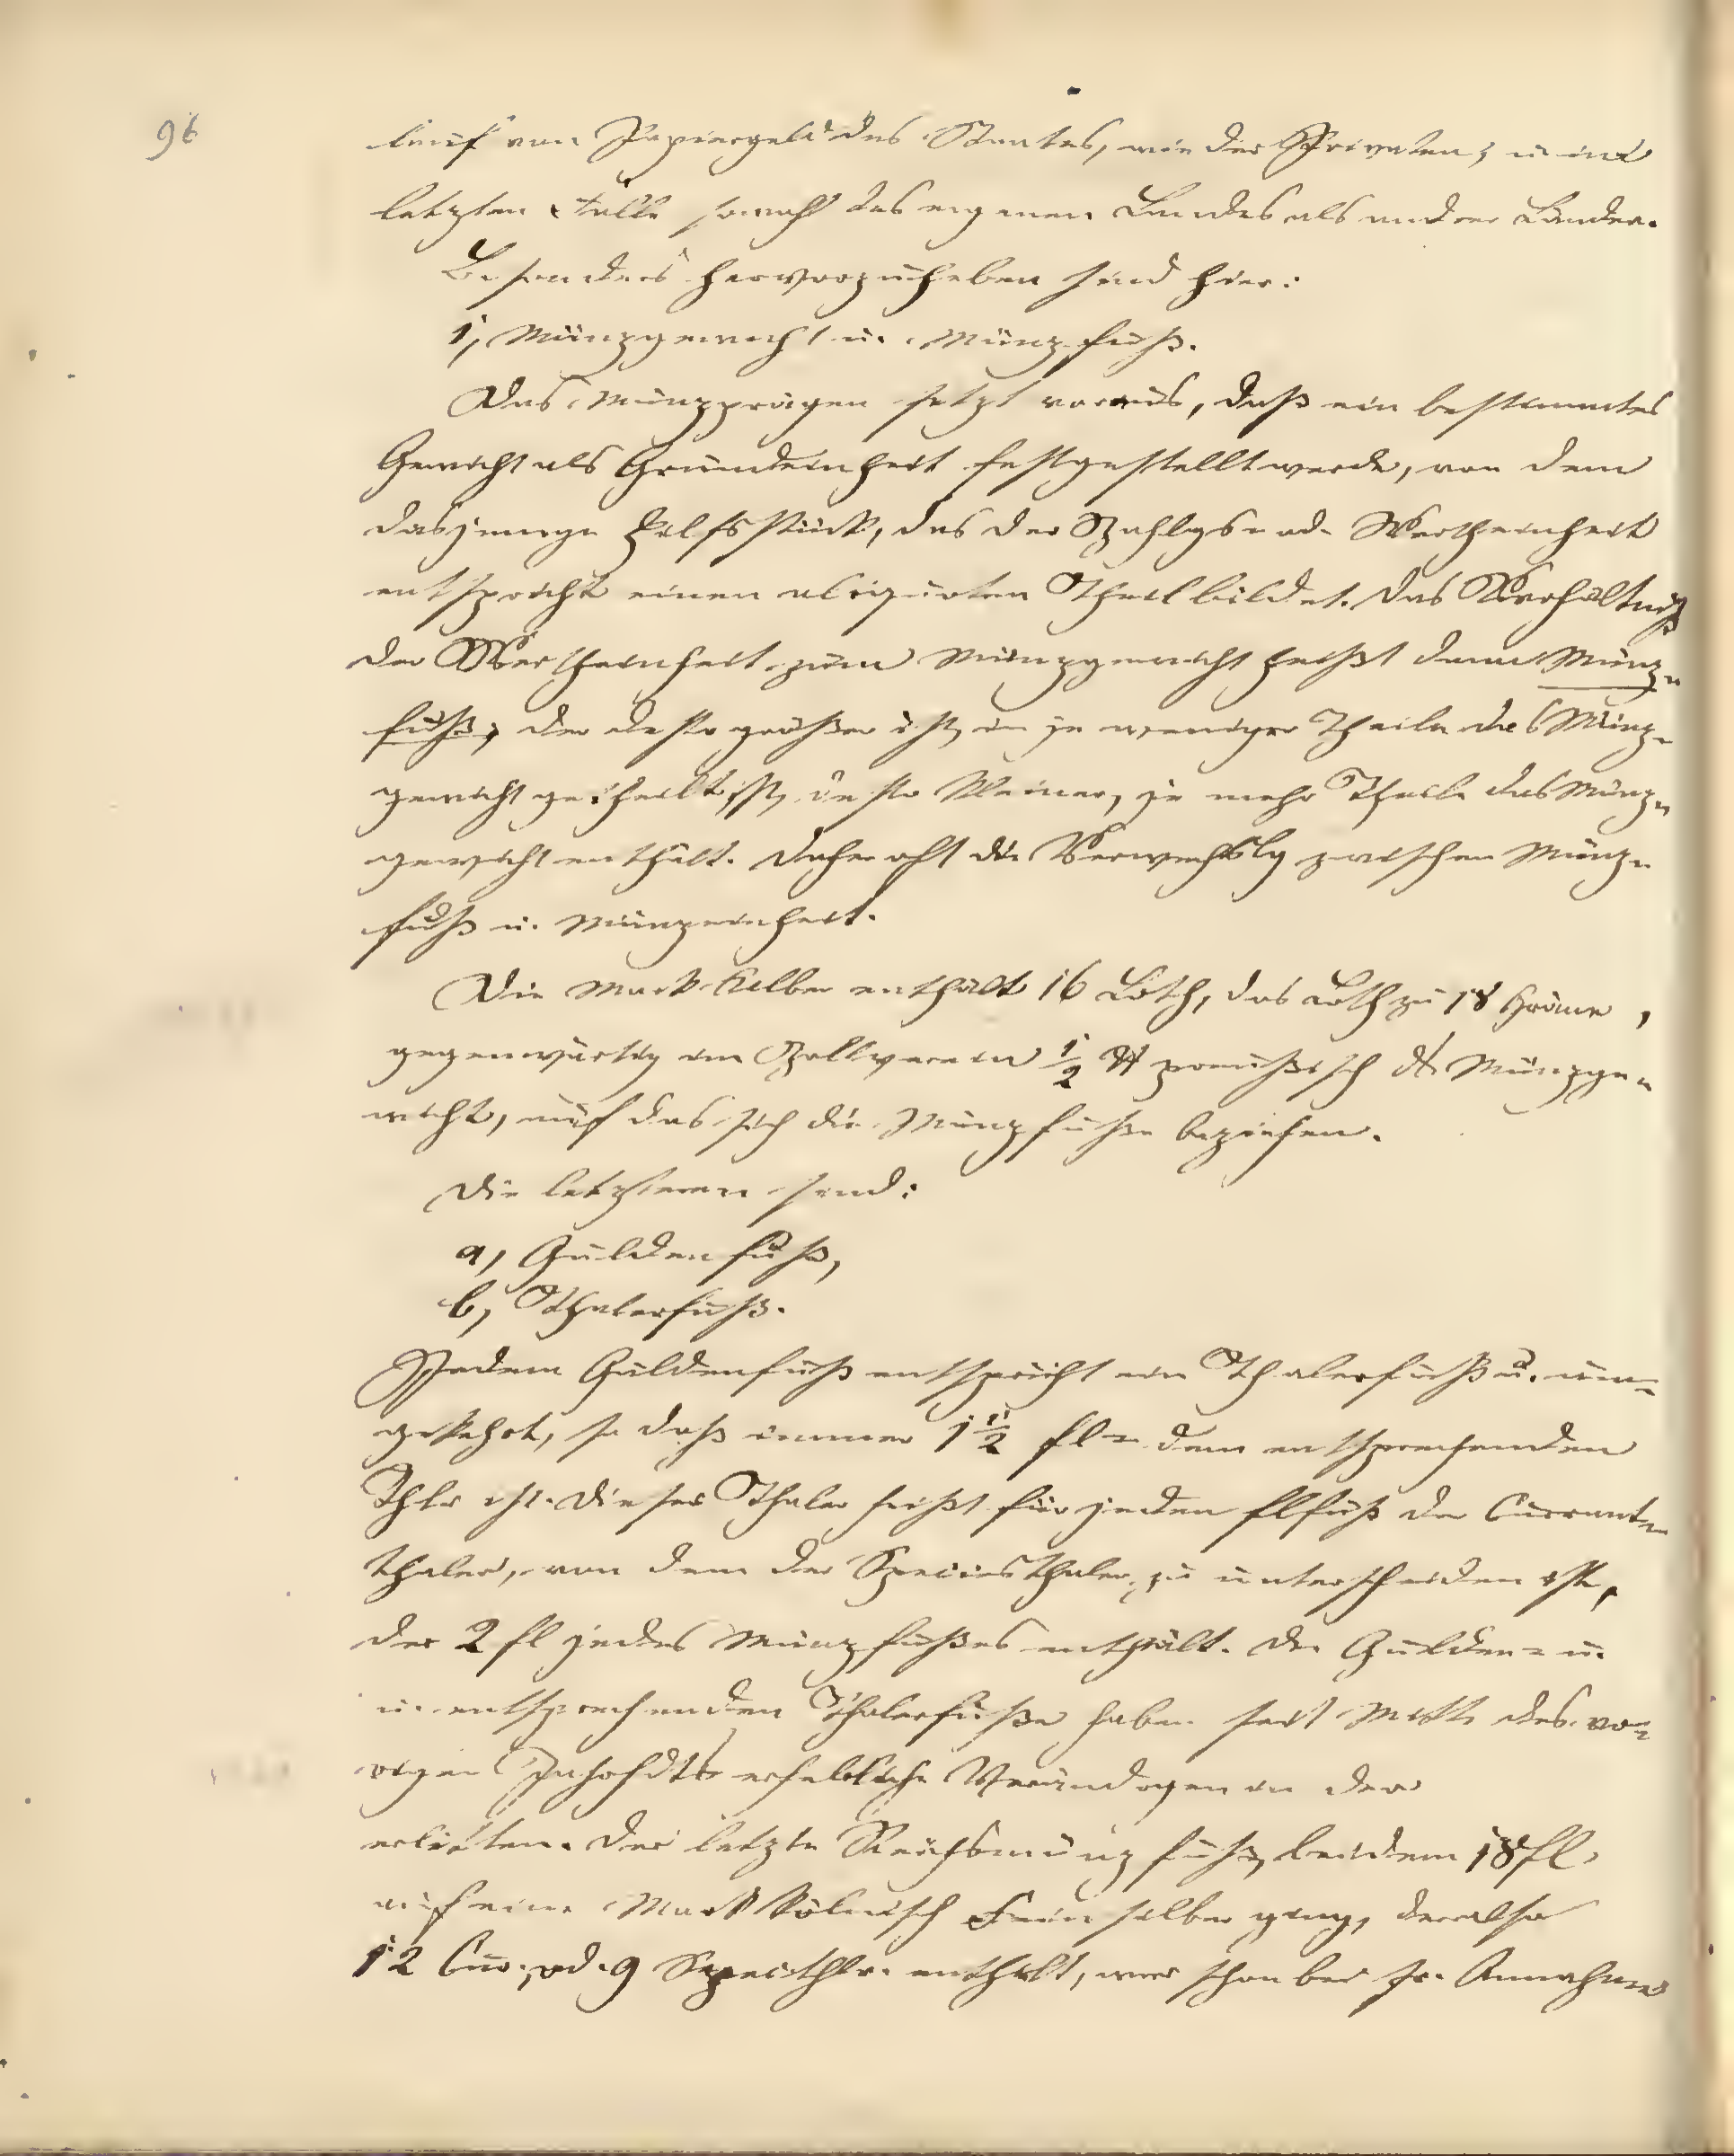 96
lauf von Papiergeld des Staates, wie der Privaten, u. im
letzten Falle sowohl des eigenen Landes als andrer Länder.
Besonders hervorzuheben sind hier:
1, Münzgewicht u. Münzfuß.
Das Münzprägen setzt voraus, daß ein bestimmtes
Gewicht als Grundeinheit festgestellt werde, von dem
dasjenige , das der Zahlgs= od. Wertheinheit
entspricht einen aliquoten Theil bildet. Das Verhältniß
der Wertheinheit zum Münzgewicht heißt dann Münz=
fuß, der desto größer ist, in je weniger Theile das Münz=
gewicht getheilt ist, desto kleiner, je mehr Theile das Münz=
gewicht enthält. Daher oft die Verwechslg zwischen Münz=
fuß u. Münzeinheit.
Die Mark Silber enthält 16 Loth, das Loth zu 18 Gräne,
gegenwärtig im Zollverein 1/2 ℔ preußisch d. Münzge=
wicht, auf das sich die Münzfuße beziehen.
Die letzteren sind:
a, Guldenfuß,
b, Thalerfuß.
Jedem Guldenfuß entspricht ein Thalerfuß u. um=
gekehrt, so daß immer 1 1/2 fl = dem entsprechenden
Thlr ist. Dieser Thaler heißt für jeden flfuß der Currant=
thaler, von dem der Speciesthaler zu unterscheiden ist,
der 2 fl jedes Münzfußes enthält. Der Gulden= u.
u. entsprechenden Thalerfuße haben seit Mitte des vo=
rigen Jahrhdts erhebliche Verändrgen in der
erlitten. Der letzte Reichsmünzfuß, bei dem 18 fl.
auf eine Mark kölnisch Feinsilber ging, der also
12 Cur. od. 9 Specithlr. enthält, war schon bei sr. Annahme